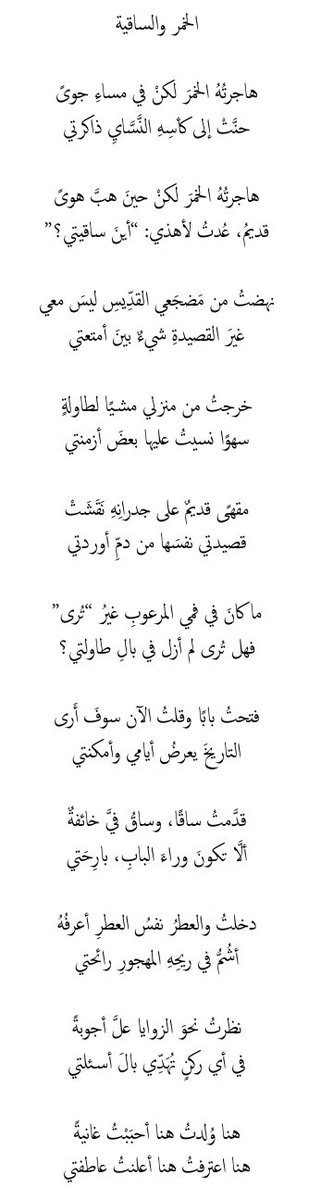 الخمر والساقية
هاجرتُهُ الخمرَ لكنْ في مساءِ جوىً
حنَّتْ إلى كأسِهِ النَّسَّايِ ذاكرتي
هاجرتُهُ الخمرَ لكنْ حينَ هبَّ هوىً
قديمُ، عُدتُ لأهذي: “أينَ ساقيتي؟”
نهضتُ من مَضجَعي القدِّيسِ ليسَ معي
غيرَ القصيدةِ شيءٌ بينَ أمتعتي
خرجتُ من منزلي مشيًا لطاولةٍ
سهوًا نسيتُ عليها بعضَ أزمنتي
مقهًى قديمٌ على جدرانِهِ نَقَشَتْ
قصيدتي نفسَها من دمِّ أوردتي
ما كانَ في فمي المرعوبِ غيرُ “تُرى”
فهل تُرى لم أزل في بالِ طاولتي؟
فتحتُ بابًا وقلتُ الآن سوفَ أَرى
التاريخَ يعرضُ أيامي وأمكنتي
قدَّمتُ ساقًا، وساقُ فيَّ خائفةٌ
ألَّا تكونَ وراءَ البابِ، بارِحَتي
دخلتُ والعطرُ نفسُ العطرِ أعرفُهُ
أشُمُّ في ريحِهِ المهجورِ رائحتي
نظرتُ نحوَ الزوايا علَّ أجوبةً
في أي ركنٍ تُهَدِّي بالَ أسئلتي
هنا وُلدتُ هنا أحبَبْتُ غانيةً
هنا اعترفتُ هنا أعلنتُ عاطفتي